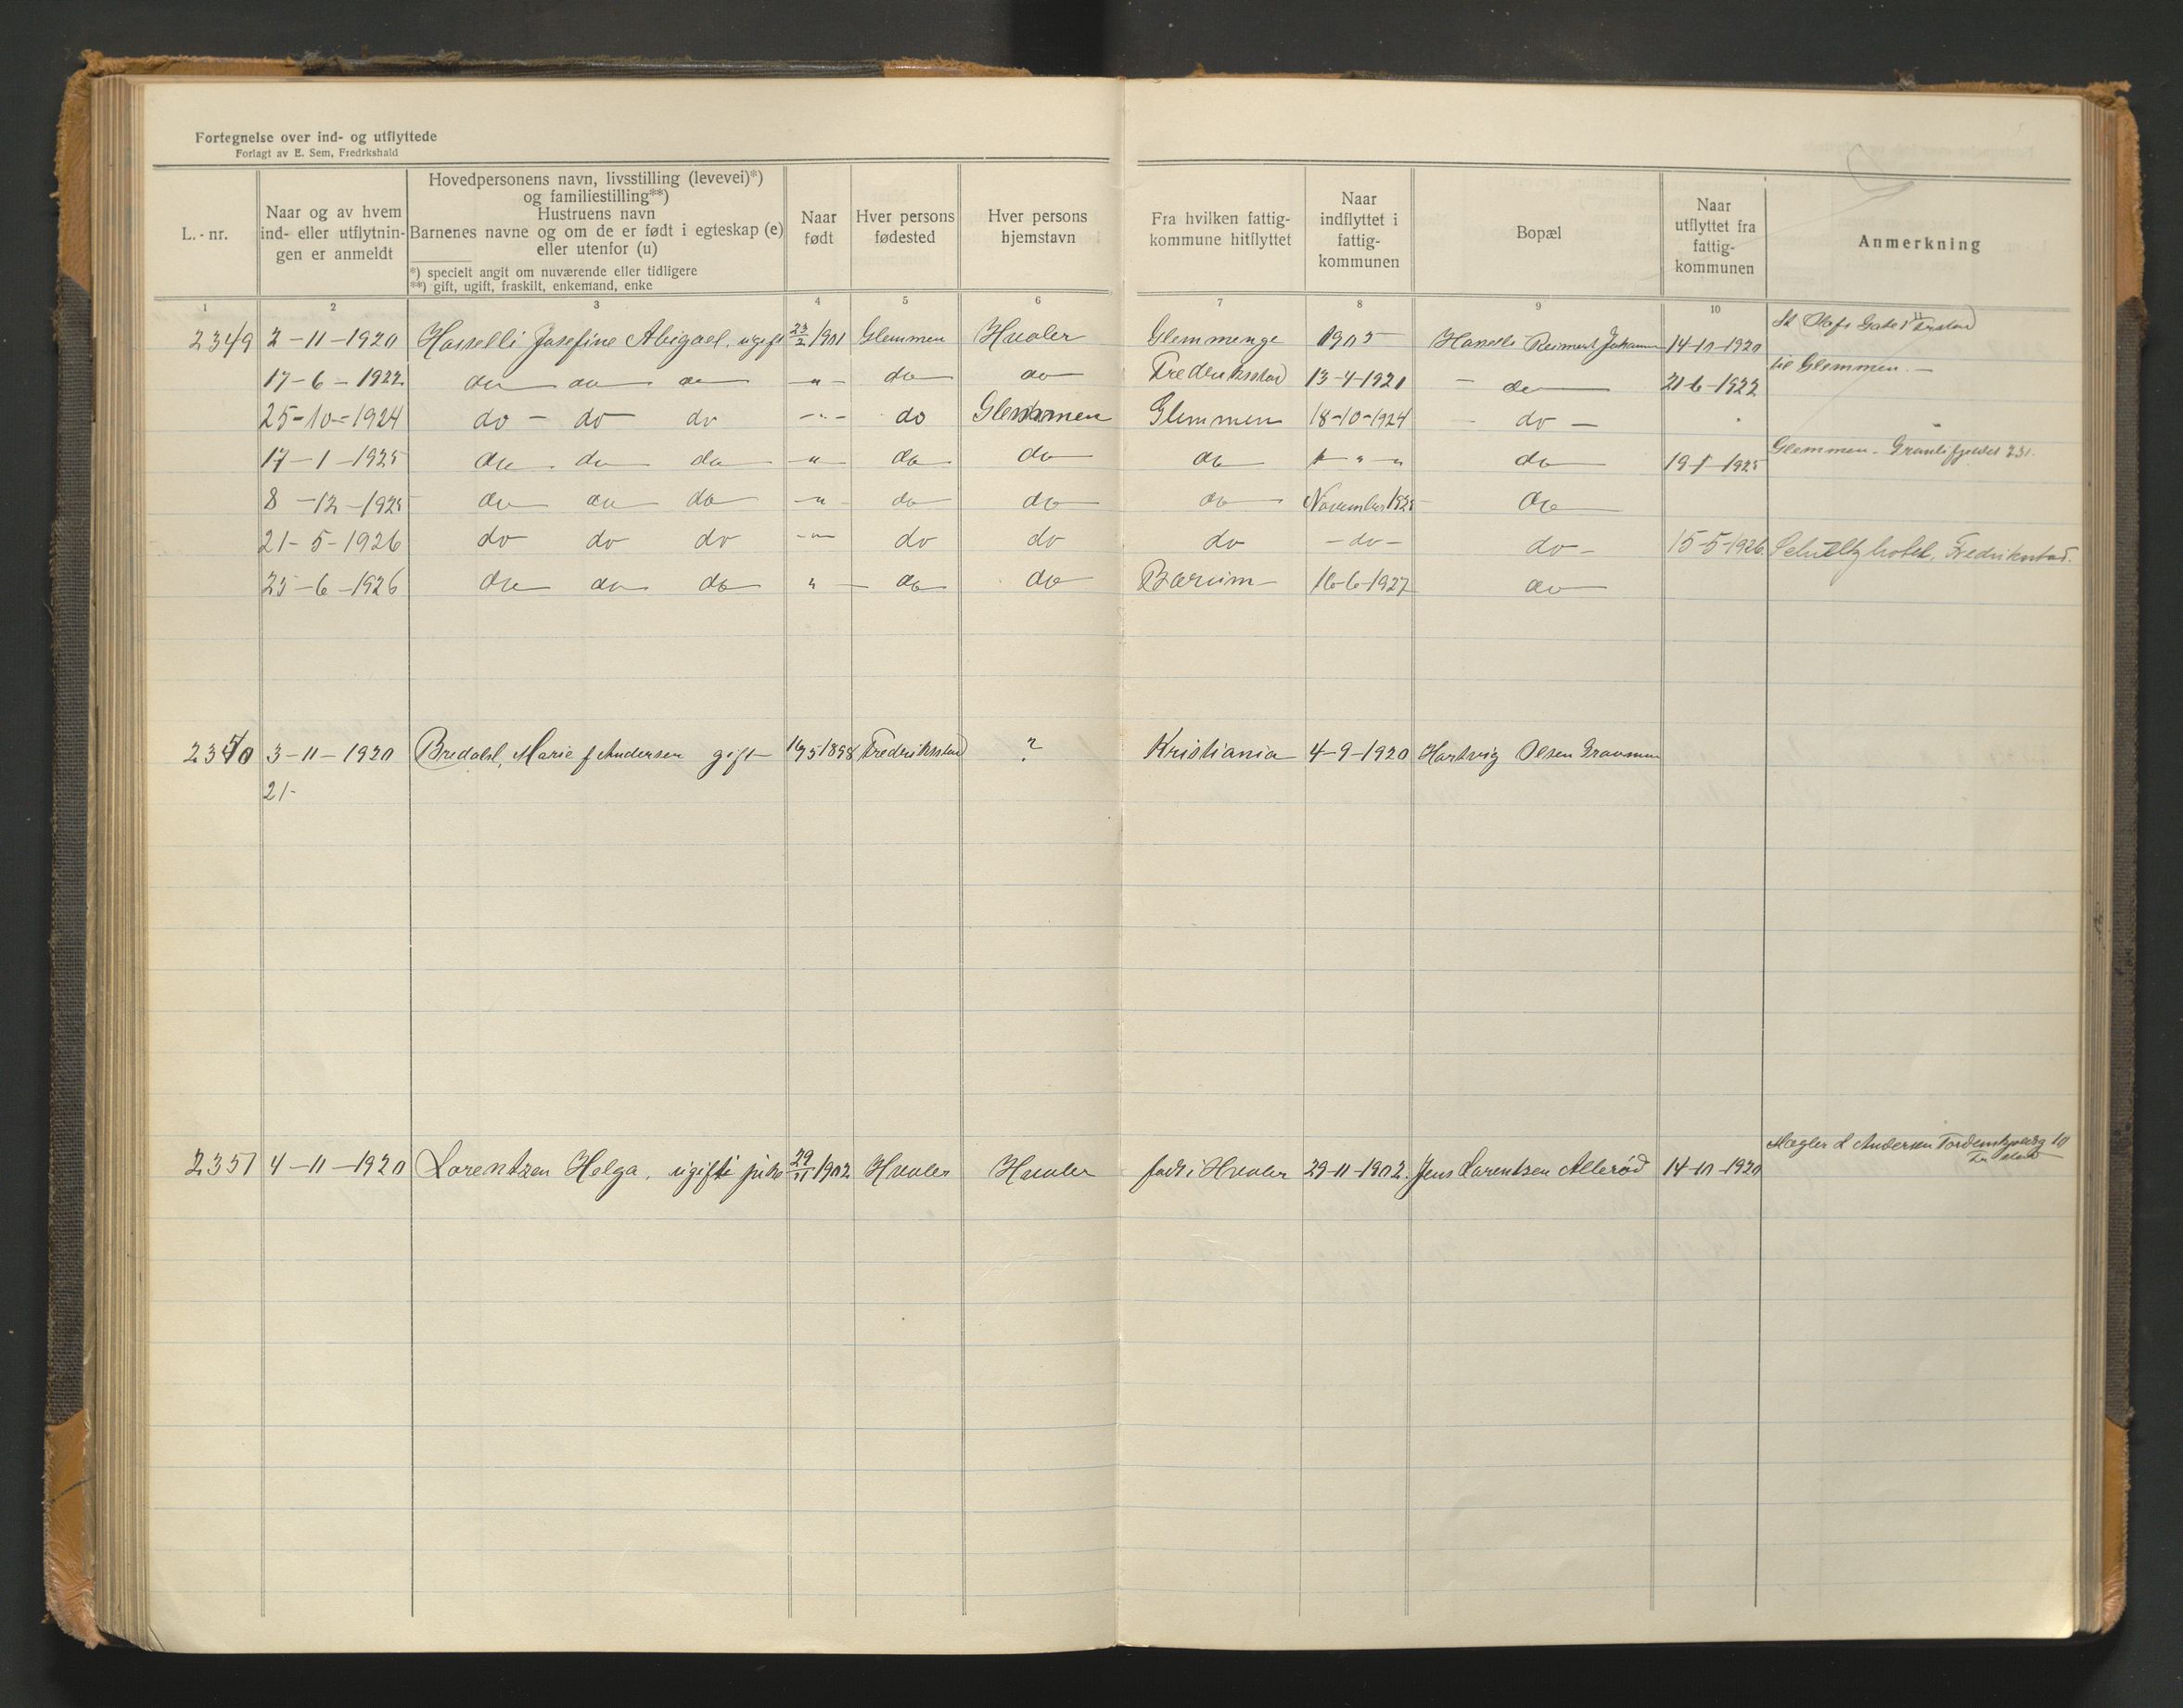 Fortegnelse over ind- og utflyttede
Forlagt av E. Sem, Fredrkshald
L.-nr.
Naar og av hvem ind- eller utflytnin-gen er anmeldt
Hovedpersonens navn, livsstilling (levevei)*)
og familiestilling**)
Hustruens navn
Barnenes navne og om de er født i egteskap (e)
eller utenfor (u)
*) specielt angit om nuværende eller tidligere
**) gift, ugift, fraskilt, enkemand, enke
Naar født
Hver persons fødested
Hver persons hjemstavn
Fra hvilken fattig-kommune hitflyttet
Naar indflyttet i fattig-kommunen
Bopæl
Naar utflyttet fra fattig-kommunen
Anmerkning
1 2 3 4 5 6 7 8 9 10
2349 2-11-1920 Hasselli Josefine Abigael. ugift 23/2 1901 Glemmen Hvaler Glemmenge 1905 Hasselli Reimert Johannes 14-10-1920 St Olafs Gate 1 Frstad
17-6-1922 do do do -"- do do Fredriksstad 13-4-1921 - do 21-6-1922 til Glemmen. -
25-10-1924 do - do do -"- do Glemmen Glemmen 18-10-1924 - do -
17-1-1925 do do do -"- do do do - " - " do 19-1-1925 Glemmen. Granlifjeldet 231.
8-12-1925 do do do -"- do do do November 1925 - do
21-5-1926 do do do -"- do do do -do- do- 15-5-1926 Schultz hotel, Fredrikstad.
25-6-1926 do do do " - do do Bærum 16-6-1927 do
2350 3-11-1920 Bredahl, Marie f Andersen gift 16/5 1898 Fredriksstad ? Kristiania 4-9-1920 Hartvig Olsen
21-
2351 4-11-1920 Lorentzen Helga, ugift pike 29/11 1902 Hvaler Hvaler født i Hvaler 29-11-1902. Jens Lorentzen Allerød 14-10-1920 Mægler L Andersen 10
Fr stad